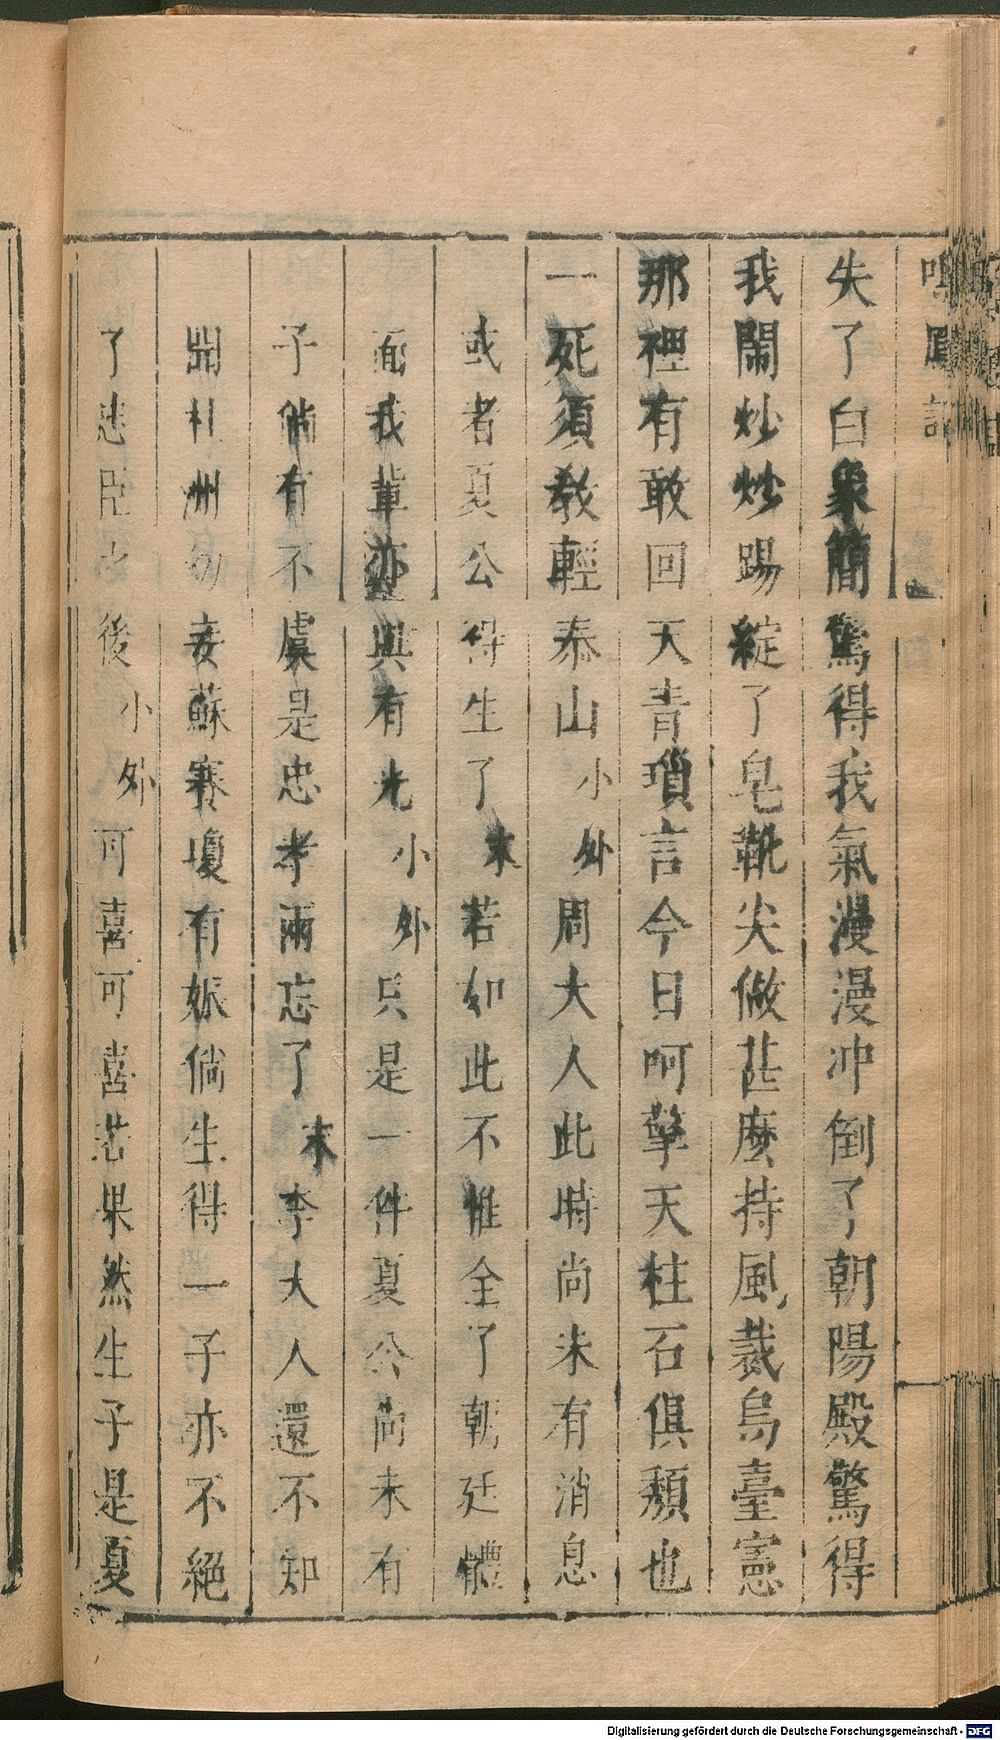 鳴鳳記
失了白象簡驚得我氣漫漫冲倒了朝陽殿驚得
我鬧炒炒踢綻了皂靴尖做甚麽持風裁烏臺憲
那裡有敢回天青瑣言今日呵擎天柱石俱頽也
一死須教輕泰山小外周大人此時尚未有消息
或者夏公得生了末若如此不惟全了朝廷體
面我輩亦與有光小外只是一件夏公尚未有
子倘有不虞是忠孝兩忘了末李大人還不知
州幼妾蘇賽瓊有娠倘生得一子亦不絕
了臣之後小外可喜可喜若果然生子是夏
Digitalisierung gefördert durch die Deutsche Forschungsgemeinschaft - DFG